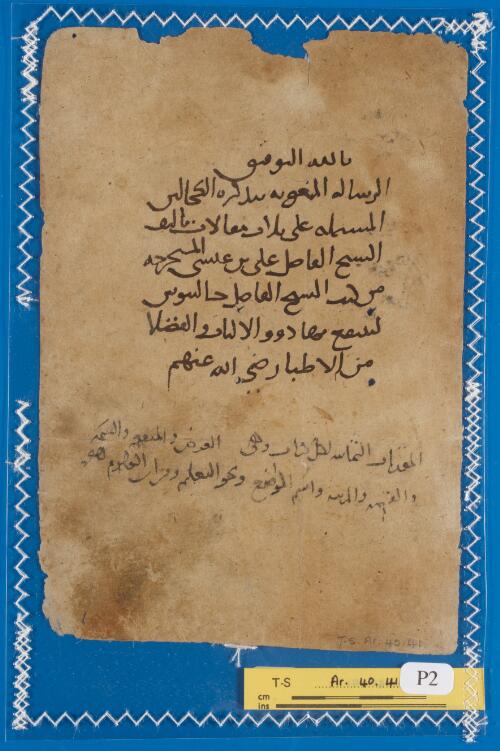 بالله التوفيق
الرسالة المنعوتة بتذكرة الكحالين
المشتملة على ثلاث مقالات تاليف
الشيخ الفاضل علي بن عيسى المستخرجة
من كتب الشيخ الفاضل جالينوس
لينتفع بها ذوو الالباب والفضلا
من الاطبا رضي الله عنهم
المقدمات الثمانية لكل كتاب وهي الغرض والمنفعة والسمة
والمرتبة واسم الواضع ونحو التعليم
T-S. Ar. 40.41
T-S Ar. 40.41
P2
cm
ins